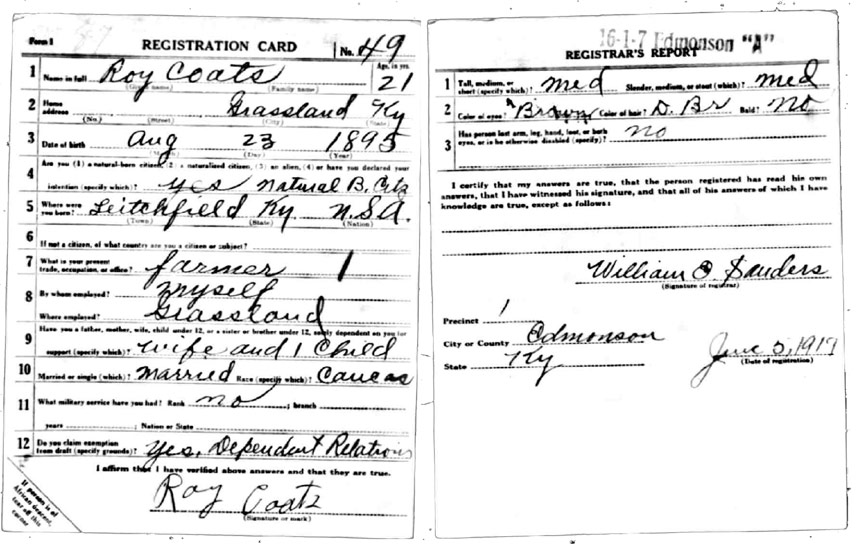 Form 1
REGISTRATION CARD
No. 49
1 Name in full Roy Coats
(Given name) (Family name)
Age, in yrs. 21
2 Home address Grassland Ky
(No.) (Street) (City) (State)
3 Date of birth Aug 23 1895
(Month) (Day) (Year)
4 Are you (1) a natural-born citizen, (2) a naturalized citizen, (3) an alien, (4) or have you declared your
intention (specify which)? yes Natural B. Citz
5 Where were you born? Leitchfield Ky. U.S.A.
(Town) (State) (Nation)
6 If not a citizen, of what country are you a citizen or subject?
7 What is your present trade, occupation, or office? farmer 1
8 By whom employed? myself
Where employed? Grassland
9 Have you a father, mother, wife, child under 12, or a sister or brother under 12, solely dependent on you for
support (specify which)? wife and 1 Child
10 Married or single (which)? Married Race (specify which)? Caucas
11 What military service have you had? Rank no ; branch
years ; Nation or State
12 Do you claim exemption from draft (specify grounds)? Yes, Dependent Relations
I affirm that I have verified above answers and that they are true.
Roy Coats
(Signature or mark)
If person is of
African descent,
tear off this
corner
16-1-7 Edmonson "A"
REGISTRAR'S REPORT
1 Tall, medium, or short (specify which)? Med Slender, medium, or stout (which)? Med
2 Color of eyes? Brown Color of hair? D. Br Bald? No
3 Has person lost arm, leg, hand, foot, or both
eyes, or is he otherwise disabled (specify)? no
I certify that my answers are true, that the person registered has read his own
answers, that I have witnessed his signature, and that all of his answers of which I have
knowledge are true, except as follows:
William O. Sanders
(Signature of registrar)
Precinct 1
City or County Edmonson
State Ky
June 5, 1917
(Date of registration)